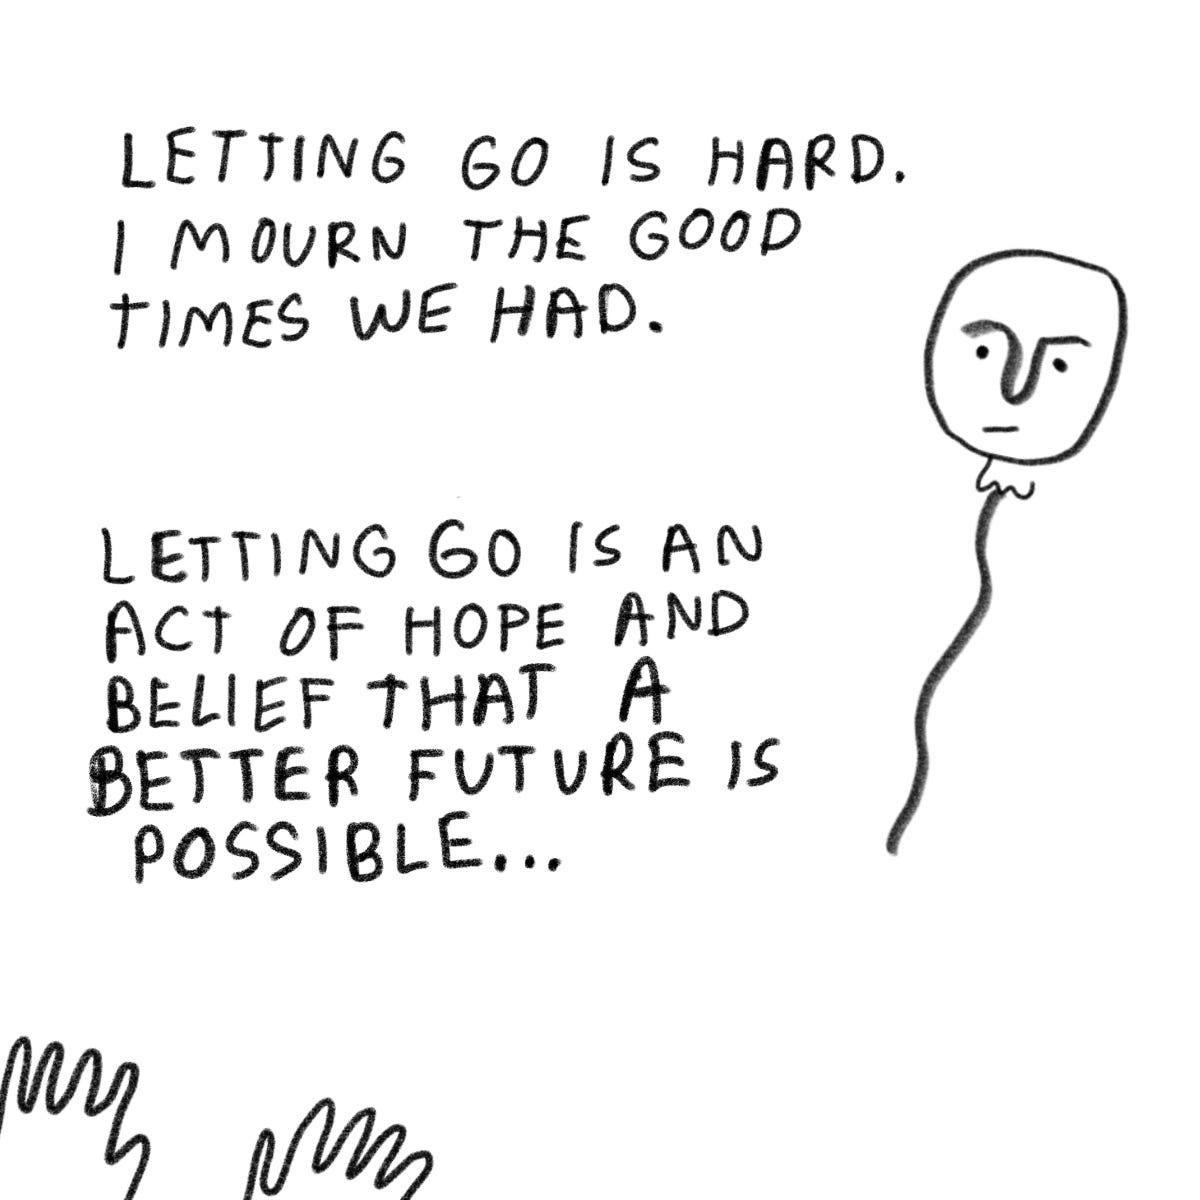 LETTING GO IS HARD.
I MOURN THE GOOD
TIMES WE HAD.
LETTING GO IS AN
ACT OF HOPE AND
BELIEF THAT A
BETTER FUTURE IS
POSSIBLE...